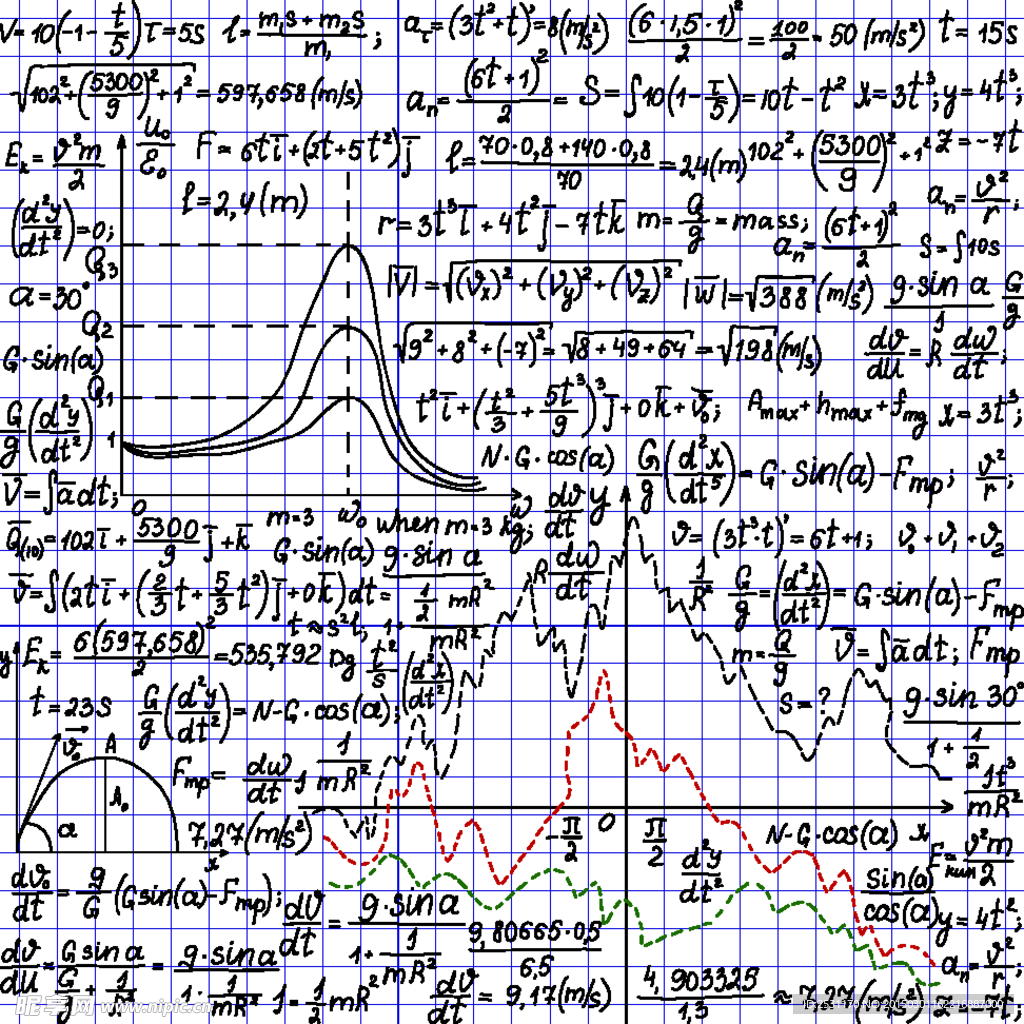 V=10(-1-t/5) τ=5s l=(m₁s+m₂s)/m₁; a_τ=(3t²+t)'=8(m/s²) (6·1,5·1)²/2=100/2=50(m/s²) t=15s
√(102²+(5300/9)²+1²)=597,658(m/s) a_n=(6t+1)²/2= S=∫10(1-τ/5)=10t-t² x=3t³; y=4t³;
E_k=v²m/2 u₀/ε₀ F=6ti̅+(2t+5t²)j̅ l=(70·0,8+140·0,8)/70=2,4(m) 102²+(5300/9)²+1² z=-7t
l=2,4(m) a_n=v²/r;
(d²y/dt²)=0; r=3t³i̅+4t²j̅-7tk̅ m=Q/g=mass; a_n=(6t+1)²/2 S=∫10s
Q₃
a=30° |V̅|=√((v_x)²+(v_y)²+(v_z)²) |w̅|=√388(m/s²) g·sin a G/g
Q₂
G·sin(a) √(9²+8²+(-7)²)=√(8+49+64)=√198(m/s) dv/du=R dw/dt;
Q₁
G/g(d²y/dt²) 1 t²i̅+(t²/3+5t³/9)³j̅+0k̅+v̅₀; A_max+h_max+f_mg x=3t³;
N·G·cos(a) G/g(d²x/dt⁵)=G·sin(a)-F_mp; v²/r;
V̅=∫a̅dt; 0 w₀ w dv/dt y
Q̅(10)=102i̅+5300/9 j̅+k̅ m=3 when m=3 kg; v=(3t³·t)'=6t+1; v₀+v₁+v₂
G·sin(a) g·sin a R dw/dt
v̅=∫(2ti̅+(2/3t+5/3t²)j̅+0k̅)dt= 1/2 mR² 1/R² G/g=(d²x/dt²)=G·sin(a)-F_mp
t≈s²l; 1+ mR² m=Q/g V̅=∫a̅dt; F_mp
y E_k=6(597,658)²/2=535,792 Dg t²/s (d²x/dt²)
t=23s G/g(d²y/dt²)=N-G·cos(a); S=? g·sin 30°
v₀ A 1+1/2
F_mp= dw/dt 1/mR² 1t³/mR²
h₀
a 7,27(m/s²) -π/2 0 π/2 N-G·cos(a) x
x d²y/dt² v²m/2
dv₀/dt=g/G(Gsin(a)-F_mp); dv/dt=g·sin a sin(a)/cos(a) y=4t²;
1+1/mR² 9,80665·0,5/6,5
dv/du=G sin a = g·sin a a_n=v²/r;
G/g+1/R² 1·1/mR² J=1/2mR² dv/dt=9,17(m/s) 4,903325/1,3≈7,27(m/s²) z=-7t;
昵享网 www.nipic.cn